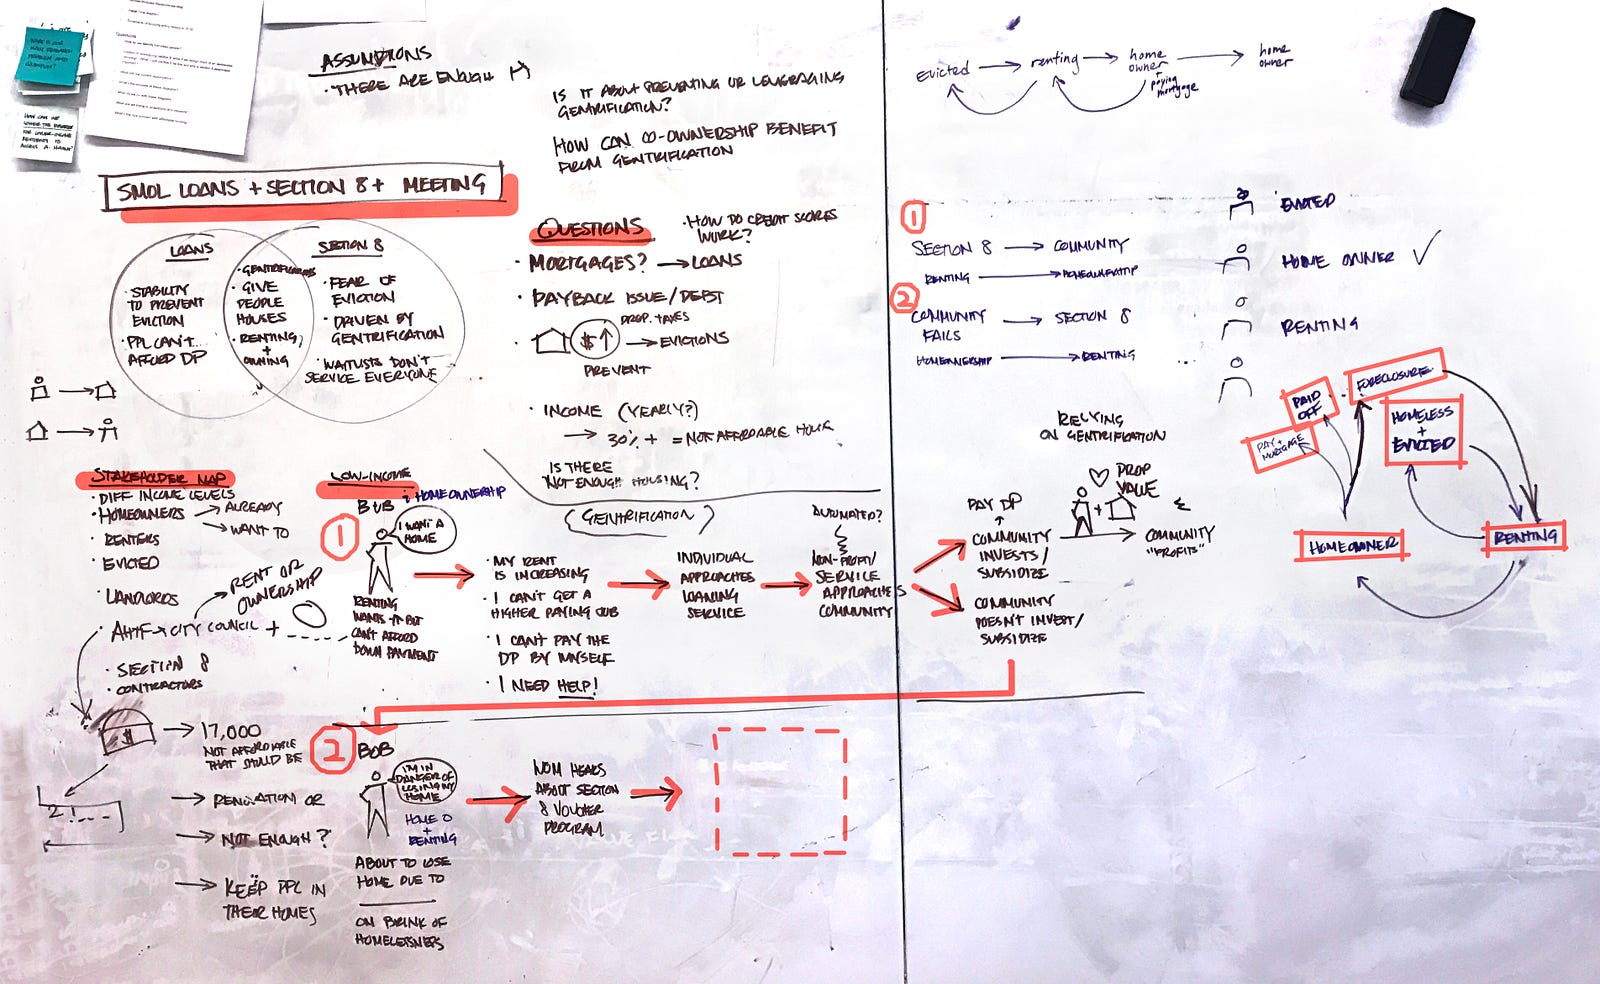 ASSUMPTIONS
· THERE ARE ENOUGH
IS IT ABOUT PREVENTING OR LEVERAGING
GENTRIFICATION?
HOW CAN CO-OWNERSHIP BENEFIT
FROM GENTRIFICATION
SMOL LOANS + SECTION 8 + MEETING
LOANS
· STABILITY
TO PREVENT
EVICTION
· PPL CAN'T
AFFORD DP
· GIVE
PEOPLE
HOUSES
· RENTING
+
OWNING
SECTION 8
· FEAR OF
EVICTION
· DRIVEN BY
GENTRIFICATION
· WAITLISTS DON'T
SERVICE EVERYONE
QUESTIONS
· HOW DO CREDIT SCORES
WORK?
· MORTGAGES? → LOANS
· PAYBACK ISSUE/DEBT
PROP. TAXES
$↑ → EVICTIONS
PREVENT
· INCOME (YEARLY?)
→ 30% + = NOT AFFORDABLE
IS THERE
NOT ENOUGH HOUSING?
STAKEHOLDER MAP
· DIFF INCOME LEVELS
· HOMEOWNERS → ALREADY
→ WANT TO
· RENTERS
· EVICTED
· LANDLORDS
→ RENT OR
OWNERSHIP
· AHTF → CITY COUNCIL +
· SECTION 8
· CONTRACTORS
$ → 17,000
NOT AFFORDABLE
THAT SHOULD BE
→ RENOVATION OR
→ NOT ENOUGH?
→ KEEP PPL IN
THEIR HOMES
LOW-INCOME
HOMEOWNERSHIP
BOB
1
I WANT A
HOME
RENTING
WANTS IT BUT
CAN'T AFFORD
DOWN PAYMENT
(GENTRIFICATION)
· MY RENT
IS INCREASING
· I CAN'T GET A
HIGHER PAYING JOB
· I CAN'T PAY THE
DP BY MYSELF
· I NEED HELP!
INDIVIDUAL
APPROACHES
LOANING
SERVICE
AUTOMATED?
NON-PROFIT/
SERVICE
APPROACHES
COMMUNITY
PAY DP
↑
COMMUNITY
INVESTS/
SUBSIDIZE
COMMUNITY
DOESN'T INVEST/
SUBSIDIZE
RELYING
ON GENTRIFICATION
PROP
VALUE
+
COMMUNITY
"PROFITS"
2
BOB
I'M IN
DANGER OF
LOSING MY
HOME
HOME O
+
RENTING
ABOUT TO LOSE
HOME DUE TO
ON BRINK OF
HOMELESSNESS
NOW HEARS
ABOUT SECTION
8 VOUCHER
PROGRAM
Evicted → renting → home
owner
+
paying
mortgage
→ home
owner
1
SECTION 8 → COMMUNITY
RENTING → HOMEOWNERSHIP
2
COMMUNITY
FAILS → SECTION 8
HOMEOWNERSHIP → RENTING
EVICTED
HOME OWNER ✓
RENTING
PAY +
MORTGAGE
PAID
OFF
FORECLOSURE
HOMELESS
+
EVICTED
HOMEOWNER
RENTING